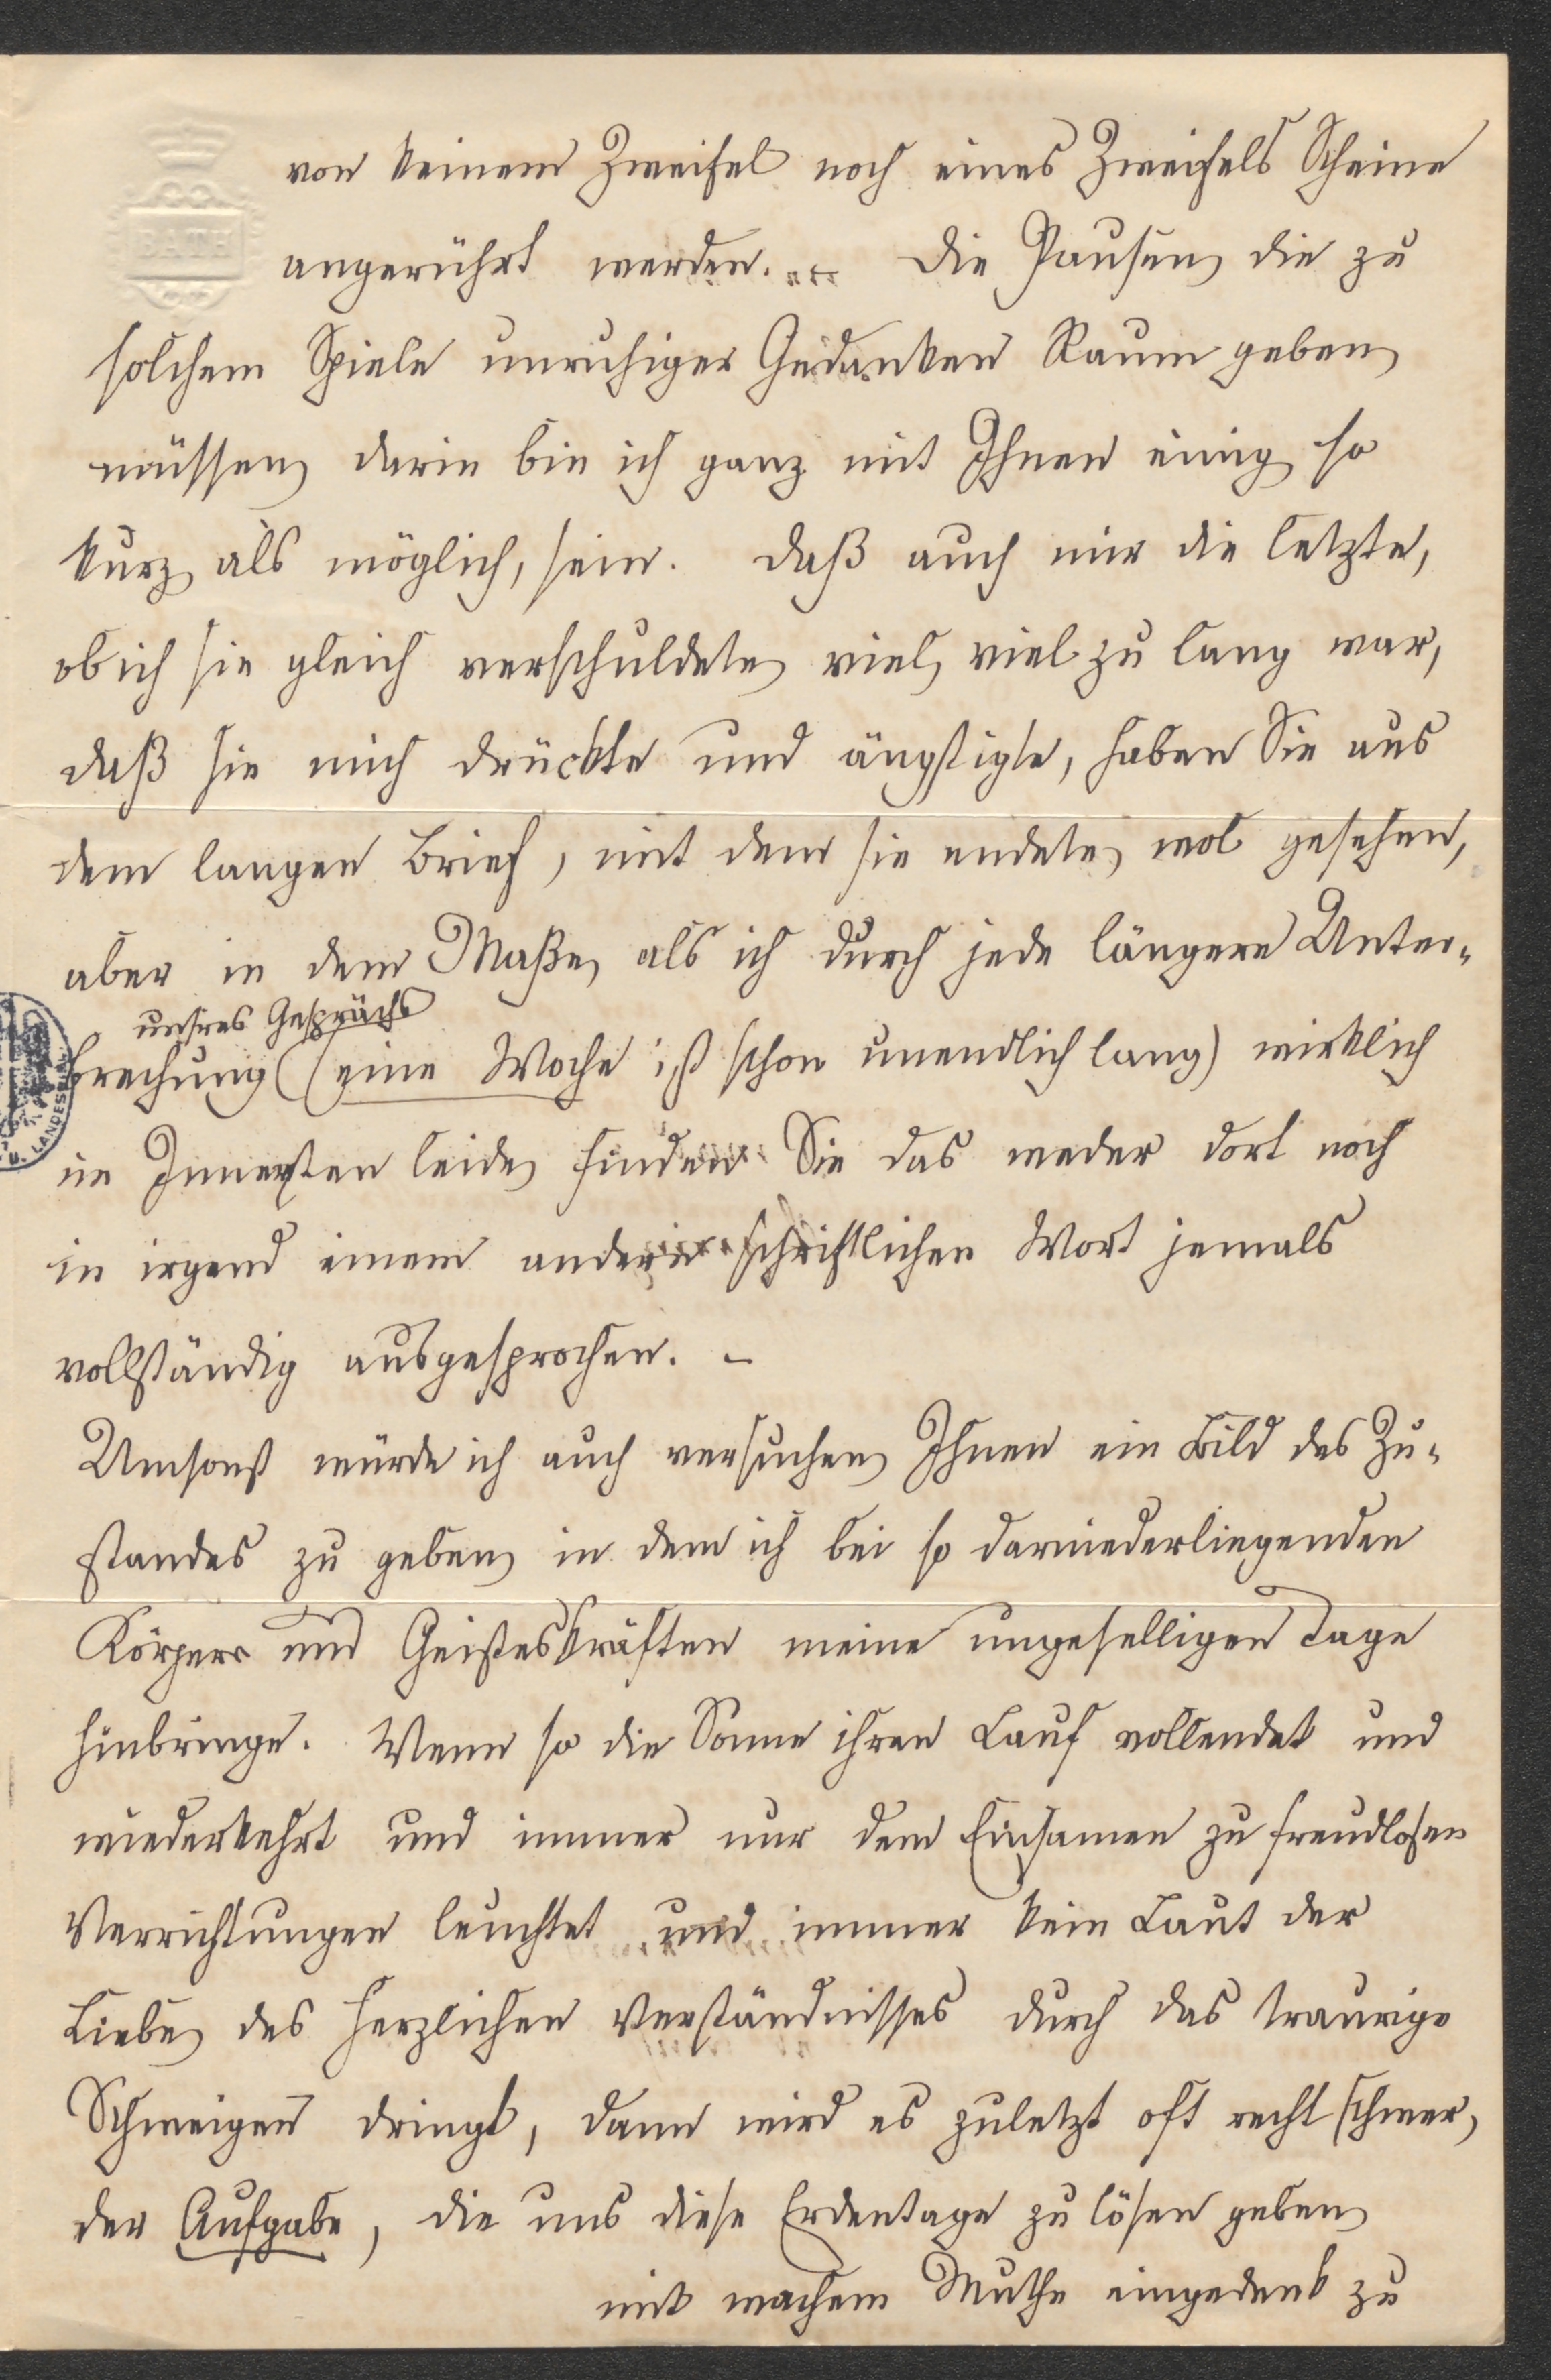 BATH
von keinem Zweifel noch eines Zweifels Scheine
angerührt werden. Die Pausen, die zu
solchem Spiele unruhiger Gedanken Raum geben,
müssen, darin bin ich ganz mit Ihnen einig, so
kurz als möglich, sein. Daß auch mir die letzte,
ob ich sie gleich verschuldete, viel, viel zu lang war,
daß sie mich drückte und ängstigte, haben Sie aus
dem langen Brief, mit dem sie endete, wol gesehen,
aber in dem Maße, als ich durch jede längere Unter-
unsres Gesprächs
brechung (eine Woche ist schon unendlich lang) wirklich
im Innersten leide, finden Sie das weder dort noch
in irgend einem andern schriftlichen Wort jemals
vollständig ausgesprochen. –
Umsonst würde ich auch versuchen, Ihnen ein Bild des Zu-
standes zu geben, in dem ich bei so darniederliegenden
Körper und Geisteskräften meine ungeselligen Tage
hinbringe. Wenn so die Sonne ihren Lauf vollendet und
wiederkehrt und immer nur dem Einsamen zu freudlosen
Verrichtungen leuchtet und immer kein Laut der
Liebe, des herzlichen Verständnisses durch das traurige
Schweigen dringt, dann wird es zuletzt oft recht schwer,
der Aufgabe, die uns diese Erdentage zu lösen geben,
mit wachem Muthe eingedenk zu